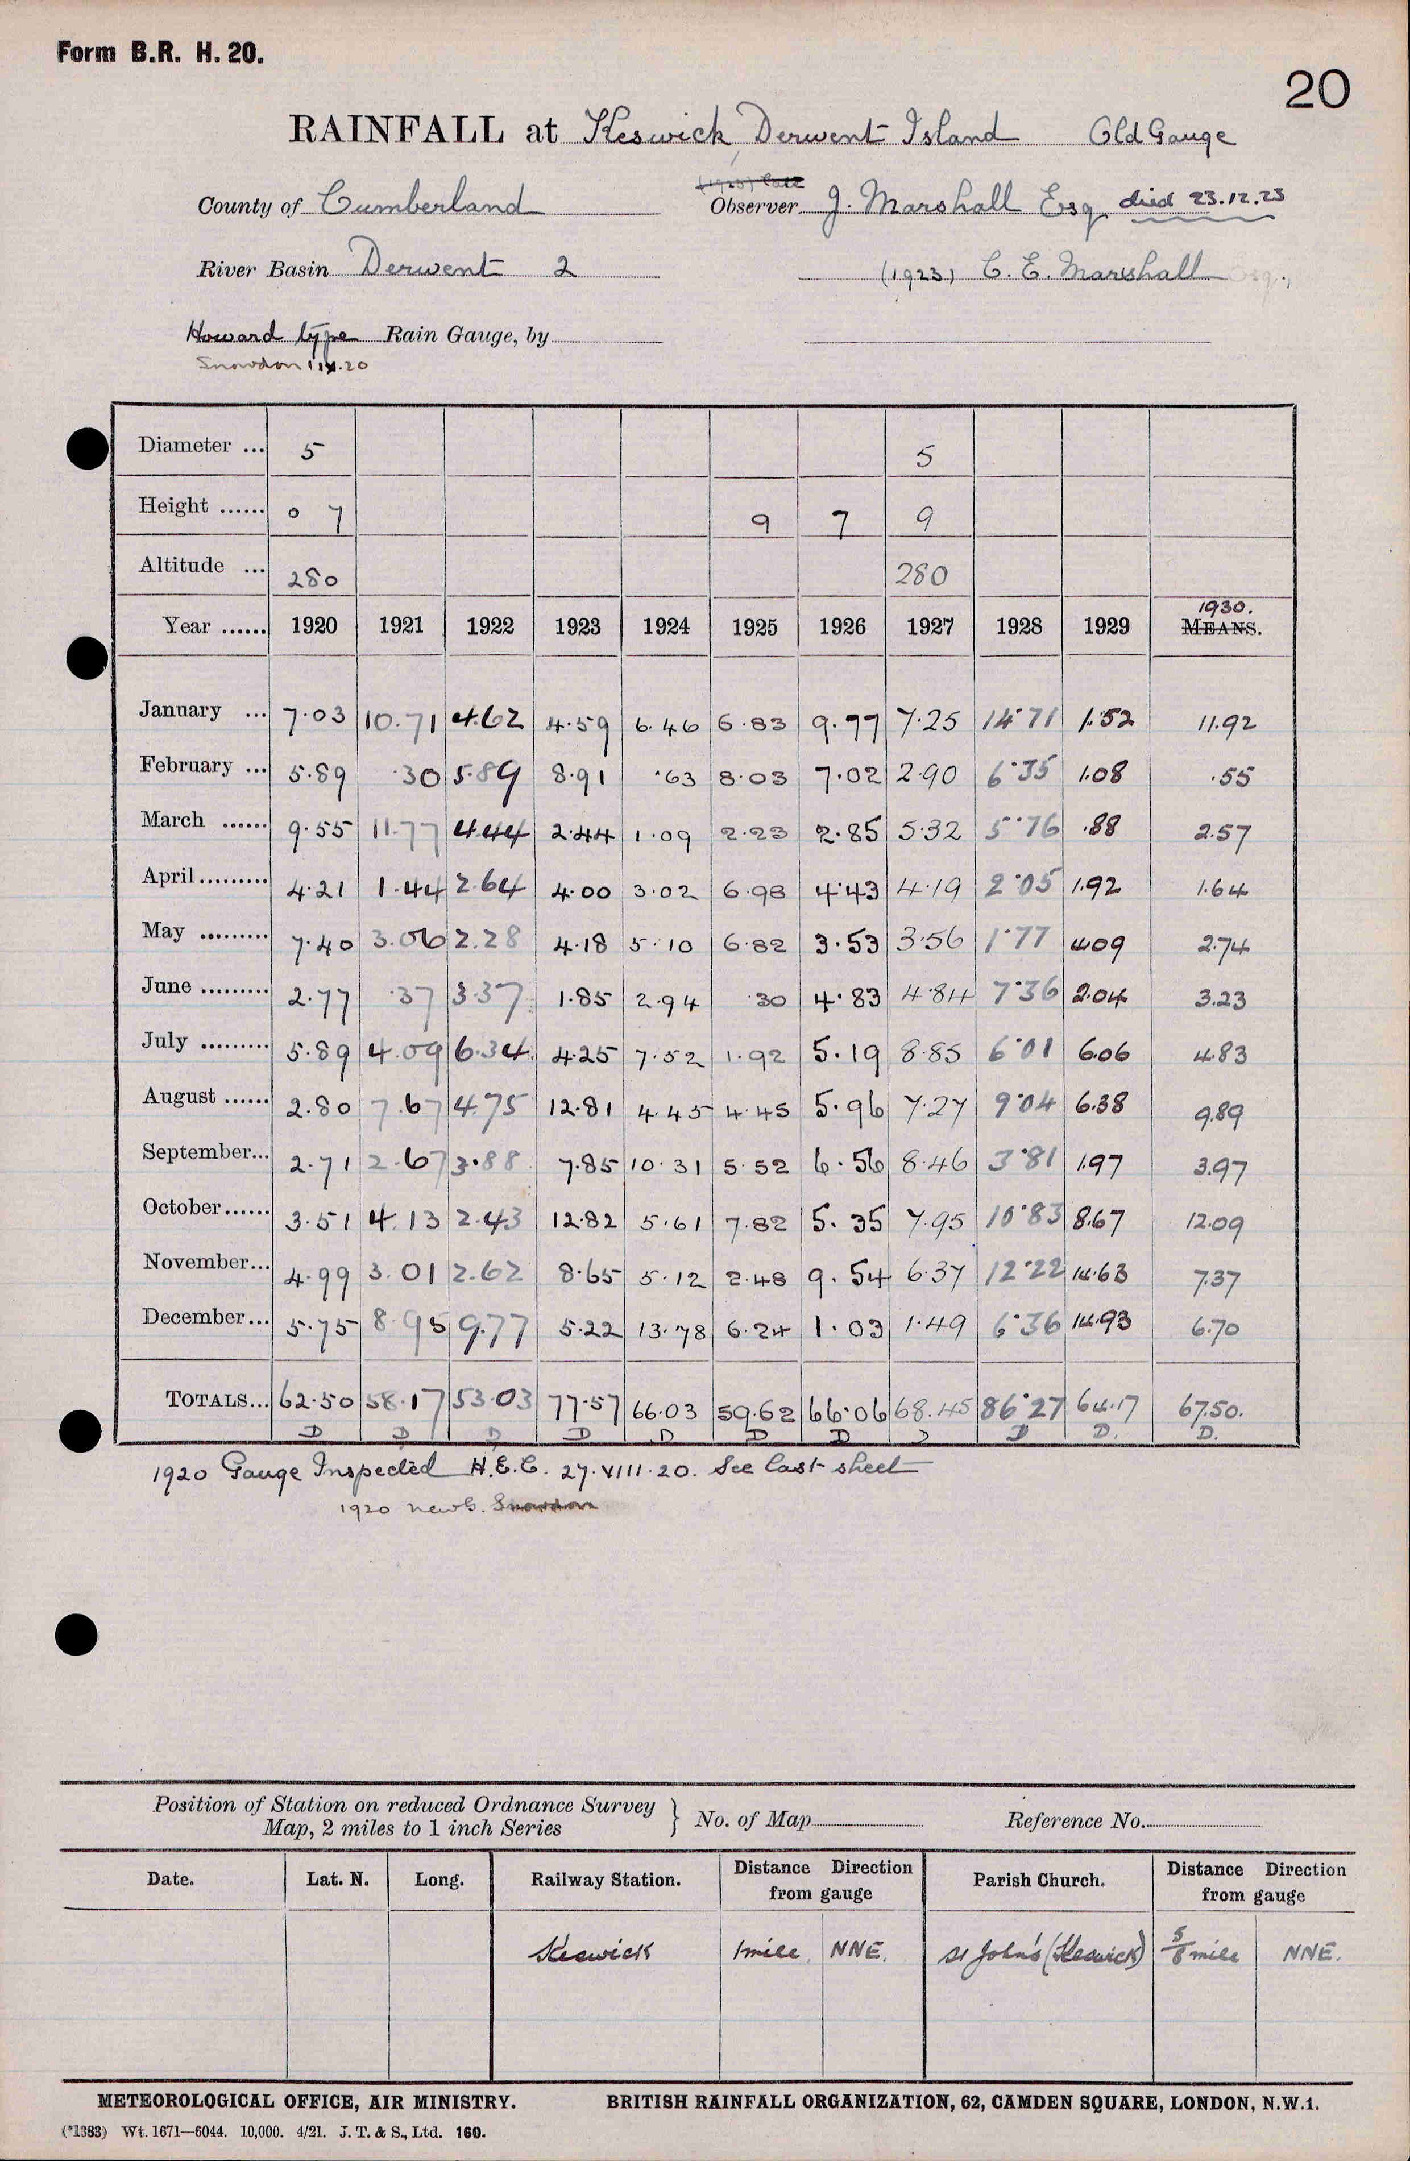 Form B.R. H. 20.
20
RAINFALL at Keswick, Derwent Island Old Gauge
County of Cumberland Observer J. Marshall Esq died 23.12.23
River Basin Derwent 2 (1923) C. E. Marshall Esq.,
Howard type Rain Gauge, by
Snowdon
Diameter ... 5 5
Height ...... 0 7 9 7 9
Altitude ... 280 280
1930.
Year ...... 1920 1921 1922 1923 1924 1925 1926 1927 1928 1929 MEANS.
January ... 7.03 10.71 4.62 4.59 6.46 6.83 9.77 7.25 14.71 1.52 11.92
February ... 5.89 .30 5.89 8.91 .63 8.03 7.02 2.90 6.35 1.08 .55
March ...... 9.55 11.77 4.44 2.44 1.09 2.23 2.85 5.32 5.76 .88 2.57
April ......... 4.21 1.44 2.64 4.00 3.02 6.98 4.43 4.19 2.05 1.92 1.64
May ......... 7.40 3.06 2.28 4.18 5.10 6.82 3.53 3.56 1.77 4.09 2.74
June ......... 2.77 .37 3.37 1.85 2.94 .30 4.83 4.84 7.36 2.04 3.23
July ......... 5.89 4.09 6.34 4.25 7.52 1.92 5.19 8.85 6.01 6.06 4.83
August ...... 2.80 7.67 4.75 12.81 4.45 4.45 5.96 7.27 9.04 6.38 9.89
September... 2.71 2.67 3.88 7.85 10.31 5.52 6.56 8.46 3.81 1.97 3.97
October...... 3.51 4.13 2.43 12.82 5.61 7.82 5.35 7.95 10.83 8.67 12.09
November... 4.99 3.01 2.62 8.65 5.12 2.48 9.54 6.37 12.22 14.63 7.37
December... 5.75 8.95 9.77 5.22 13.78 6.24 1.03 1.49 6.36 14.93 6.70
TOTALS... 62.50 58.17 53.03 77.57 66.03 59.62 66.06 68.45 86.27 64.17 67.50.
D D D D D D D D D D. D.
1920 Gauge Inspected H.E.C. 27.VIII.20. See last sheet
1920 new G. Snowdon
Position of Station on reduced Ordnance Survey Map, 2 miles to 1 inch Series } No. of Map Reference No.
Date. Lat. N. Long. Railway Station. Distance Direction from gauge Parish Church. Distance Direction from gauge
Keswick 1 mile NNE. St John's (Keswick) 5/8 mile NNE.
METEOROLOGICAL OFFICE, AIR MINISTRY. BRITISH RAINFALL ORGANIZATION, 62, CAMDEN SQUARE, LONDON, N.W.1.
(*1383) Wt. 1671—6044. 10,000. 4/21. J. T. & S., Ltd. 160.